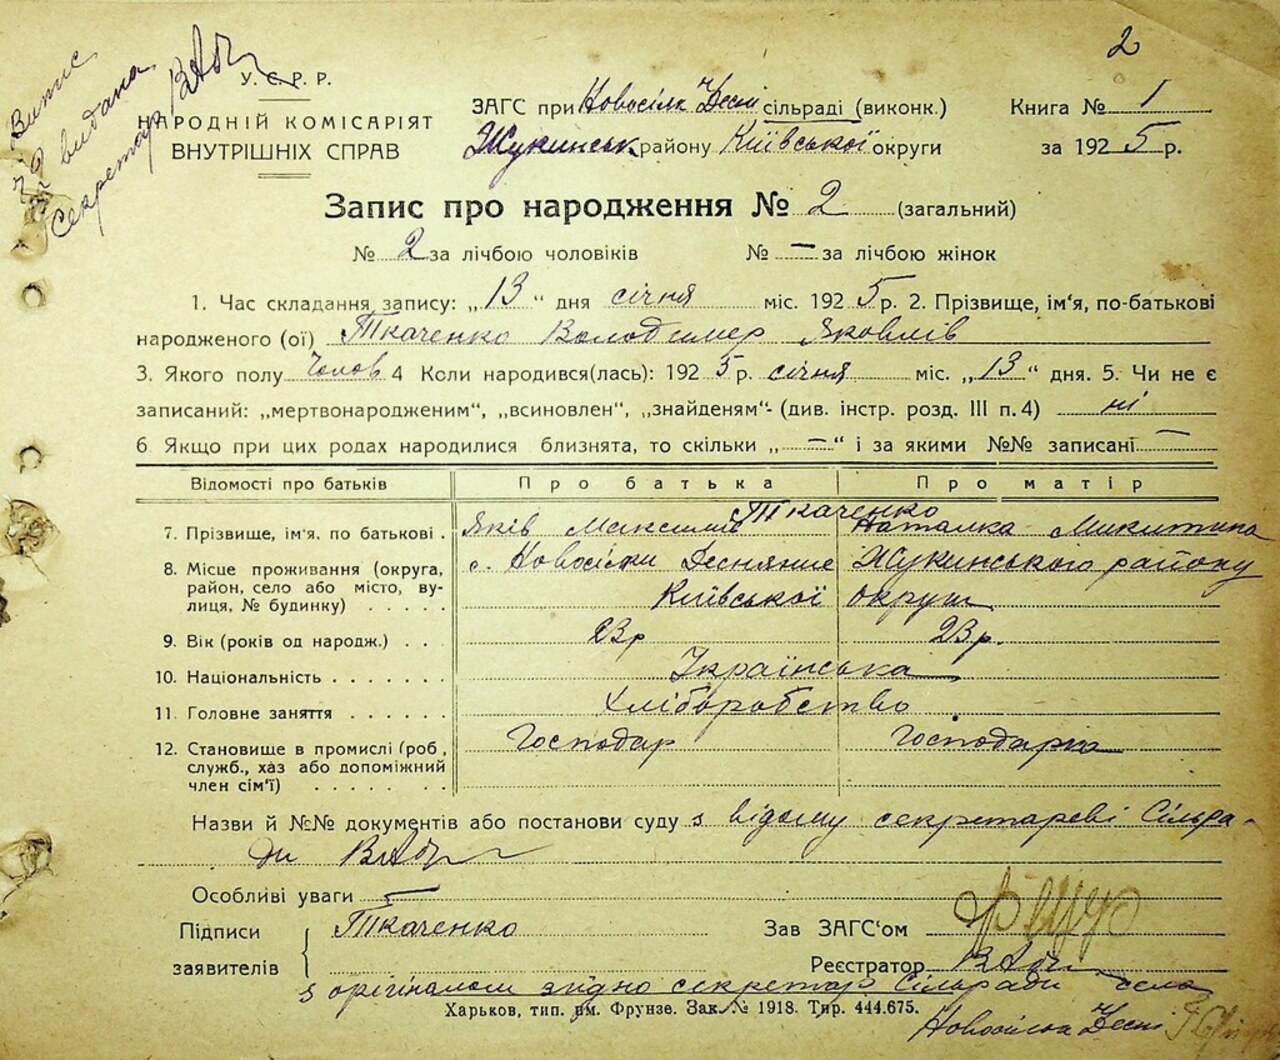 2
Випис
видана
Секретар
У.С.Р.Р.
НАРОДНІЙ КОМІСАРІЯТ
ВНУТРІШНІХ СПРАВ
ЗАГС при Новосілк Десн сільраді (виконк.)
Жукинськ району Київської округи
Книга № 1
за 1925 р.
Запис про народження № 2 (загальний)
№ 2 за лічбою чоловіків № — за лічбою жінок
1. Час складання запису: „13“ дня січня міс. 1925 р. 2. Прізвище, ім'я, по-батькові
народженого (ої) Ткаченко Володимер Яковлів
3. Якого полу Чолов 4 Коли народився(лась): 1925 р. січня міс. „13“ дня. 5. Чи не є
записаний: „мертвонародженим“, „всиновлен“, „знайденям“- (див. інстр. розд. III п. 4) ні
6 Якщо при цих родах народилися близнята, то скільки „—“ і за якими №№ записані —
Відомості про батьків Про батька Про матір
Ткаченко
7. Прізвище, ім'я, по батькові . Яків Максимів Наталка Микитина
8. Місце проживання (округа, с. Новосілки Деснянські Жукинського району
район, село або місто, ву-
лиця, № будинку) . . . . . Київської округи
9. Вік (років од народж.) . . . 23 р 23 р.
10. Національність . . . . . . . Українська
11. Головне заняття . . . . . . Хліборобство
12. Становище в промислі (роб, Господар Господарка
служб., хаз або допоміжний
член сім'ї) . . . . . . .
Назви й №№ документів або постанови суду з відому секретареві Сільра-
ди
Особливі уваги —
Підписи Ткаченко Зав ЗАГС'ом
заявителів Реєстратор
з оригіналом згідно секретар Сільради села
Харьков, тип. им. Фрунзе. Зак. № 1918. Тир. 444.675.
Новосілк Десн